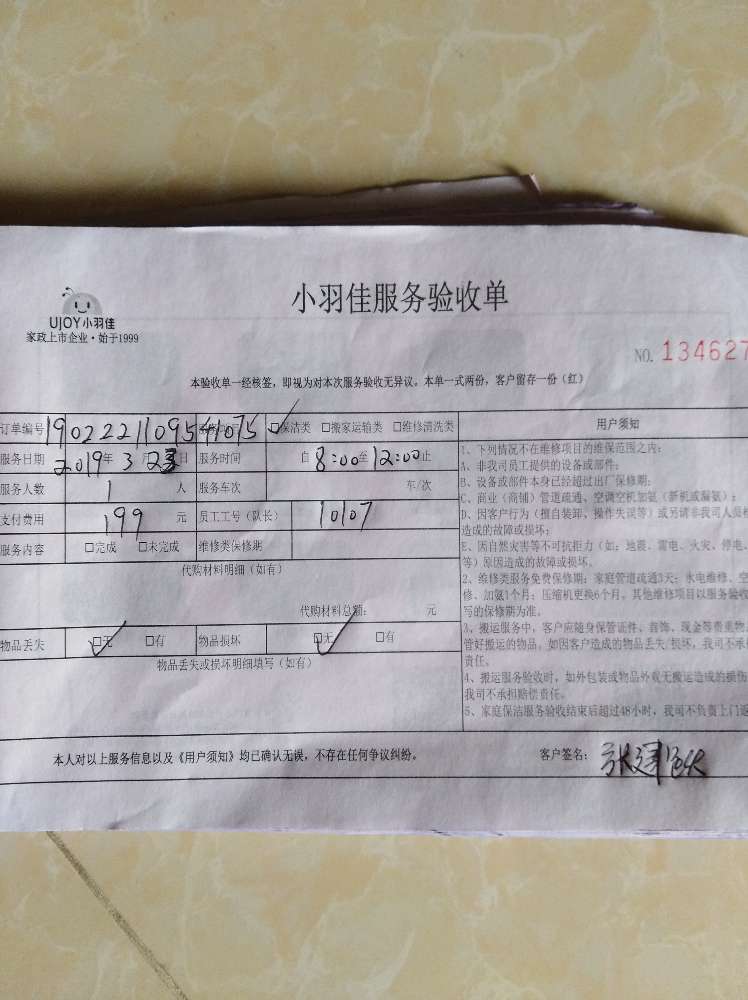 小羽佳服务验收单
UJOY小羽佳
家政上市企业·始于1999
NO. 134627
本验收单一经核签，即视为对本次服务验收无异议。本单一式两份，客户留存一份（红）
订单编号 1902221109541075 □保洁类 □搬家运输类 □维修清洗类
服务日期 2019年 3 月 日 服务时间 自 8:00至12:00止
服务人数 1 人 服务车次 车/次
支付费用 199 元 员工工号（队长） 10107
服务内容 □完成 □未完成 维修类保修期
代购材料明细（如有）
代购材料总额： 元
物品丢失 □无 □有 物品损坏 □无 □有
物品丢失或损坏明细填写（如有）
用户须知
1、下列情况不在维修项目的维保范围之内：
A、非我司员工提供的设备或部件；
B、设备或部件本身已经超过出厂保修期；
C、商业（商铺）管道疏通、空调空机加氨（新机或漏氨）；
D、因客户行为（擅自装卸、操作失误等）或另请非我司人员
造成的故障或损坏；
E、因自然灾害等不可抗拒力（如：地震、雷电、火灾、停电、
等）原因造成的故障或损坏。
2、维修类服务免费保修期：家庭管道疏通3天；水电维修、空
修、加氨1个月；压缩机更换6个月。其他维修项目以服务验收
写的保修期为准。
3、搬运服务中，客户应随身保管证件、首饰、现金等贵重物
管好搬运的物品，如因客户造成的物品丢失/损坏，我司不承
责任。
4、搬运服务验收时，如外包装或物品外观无搬运造成的损伤
我司不承担赔偿责任。
5、家庭保洁服务验收结束后超过48小时，我司不负责上门返
本人对以上服务信息以及《用户须知》均已确认无误，不存在任何争议纠纷。 客户签名：